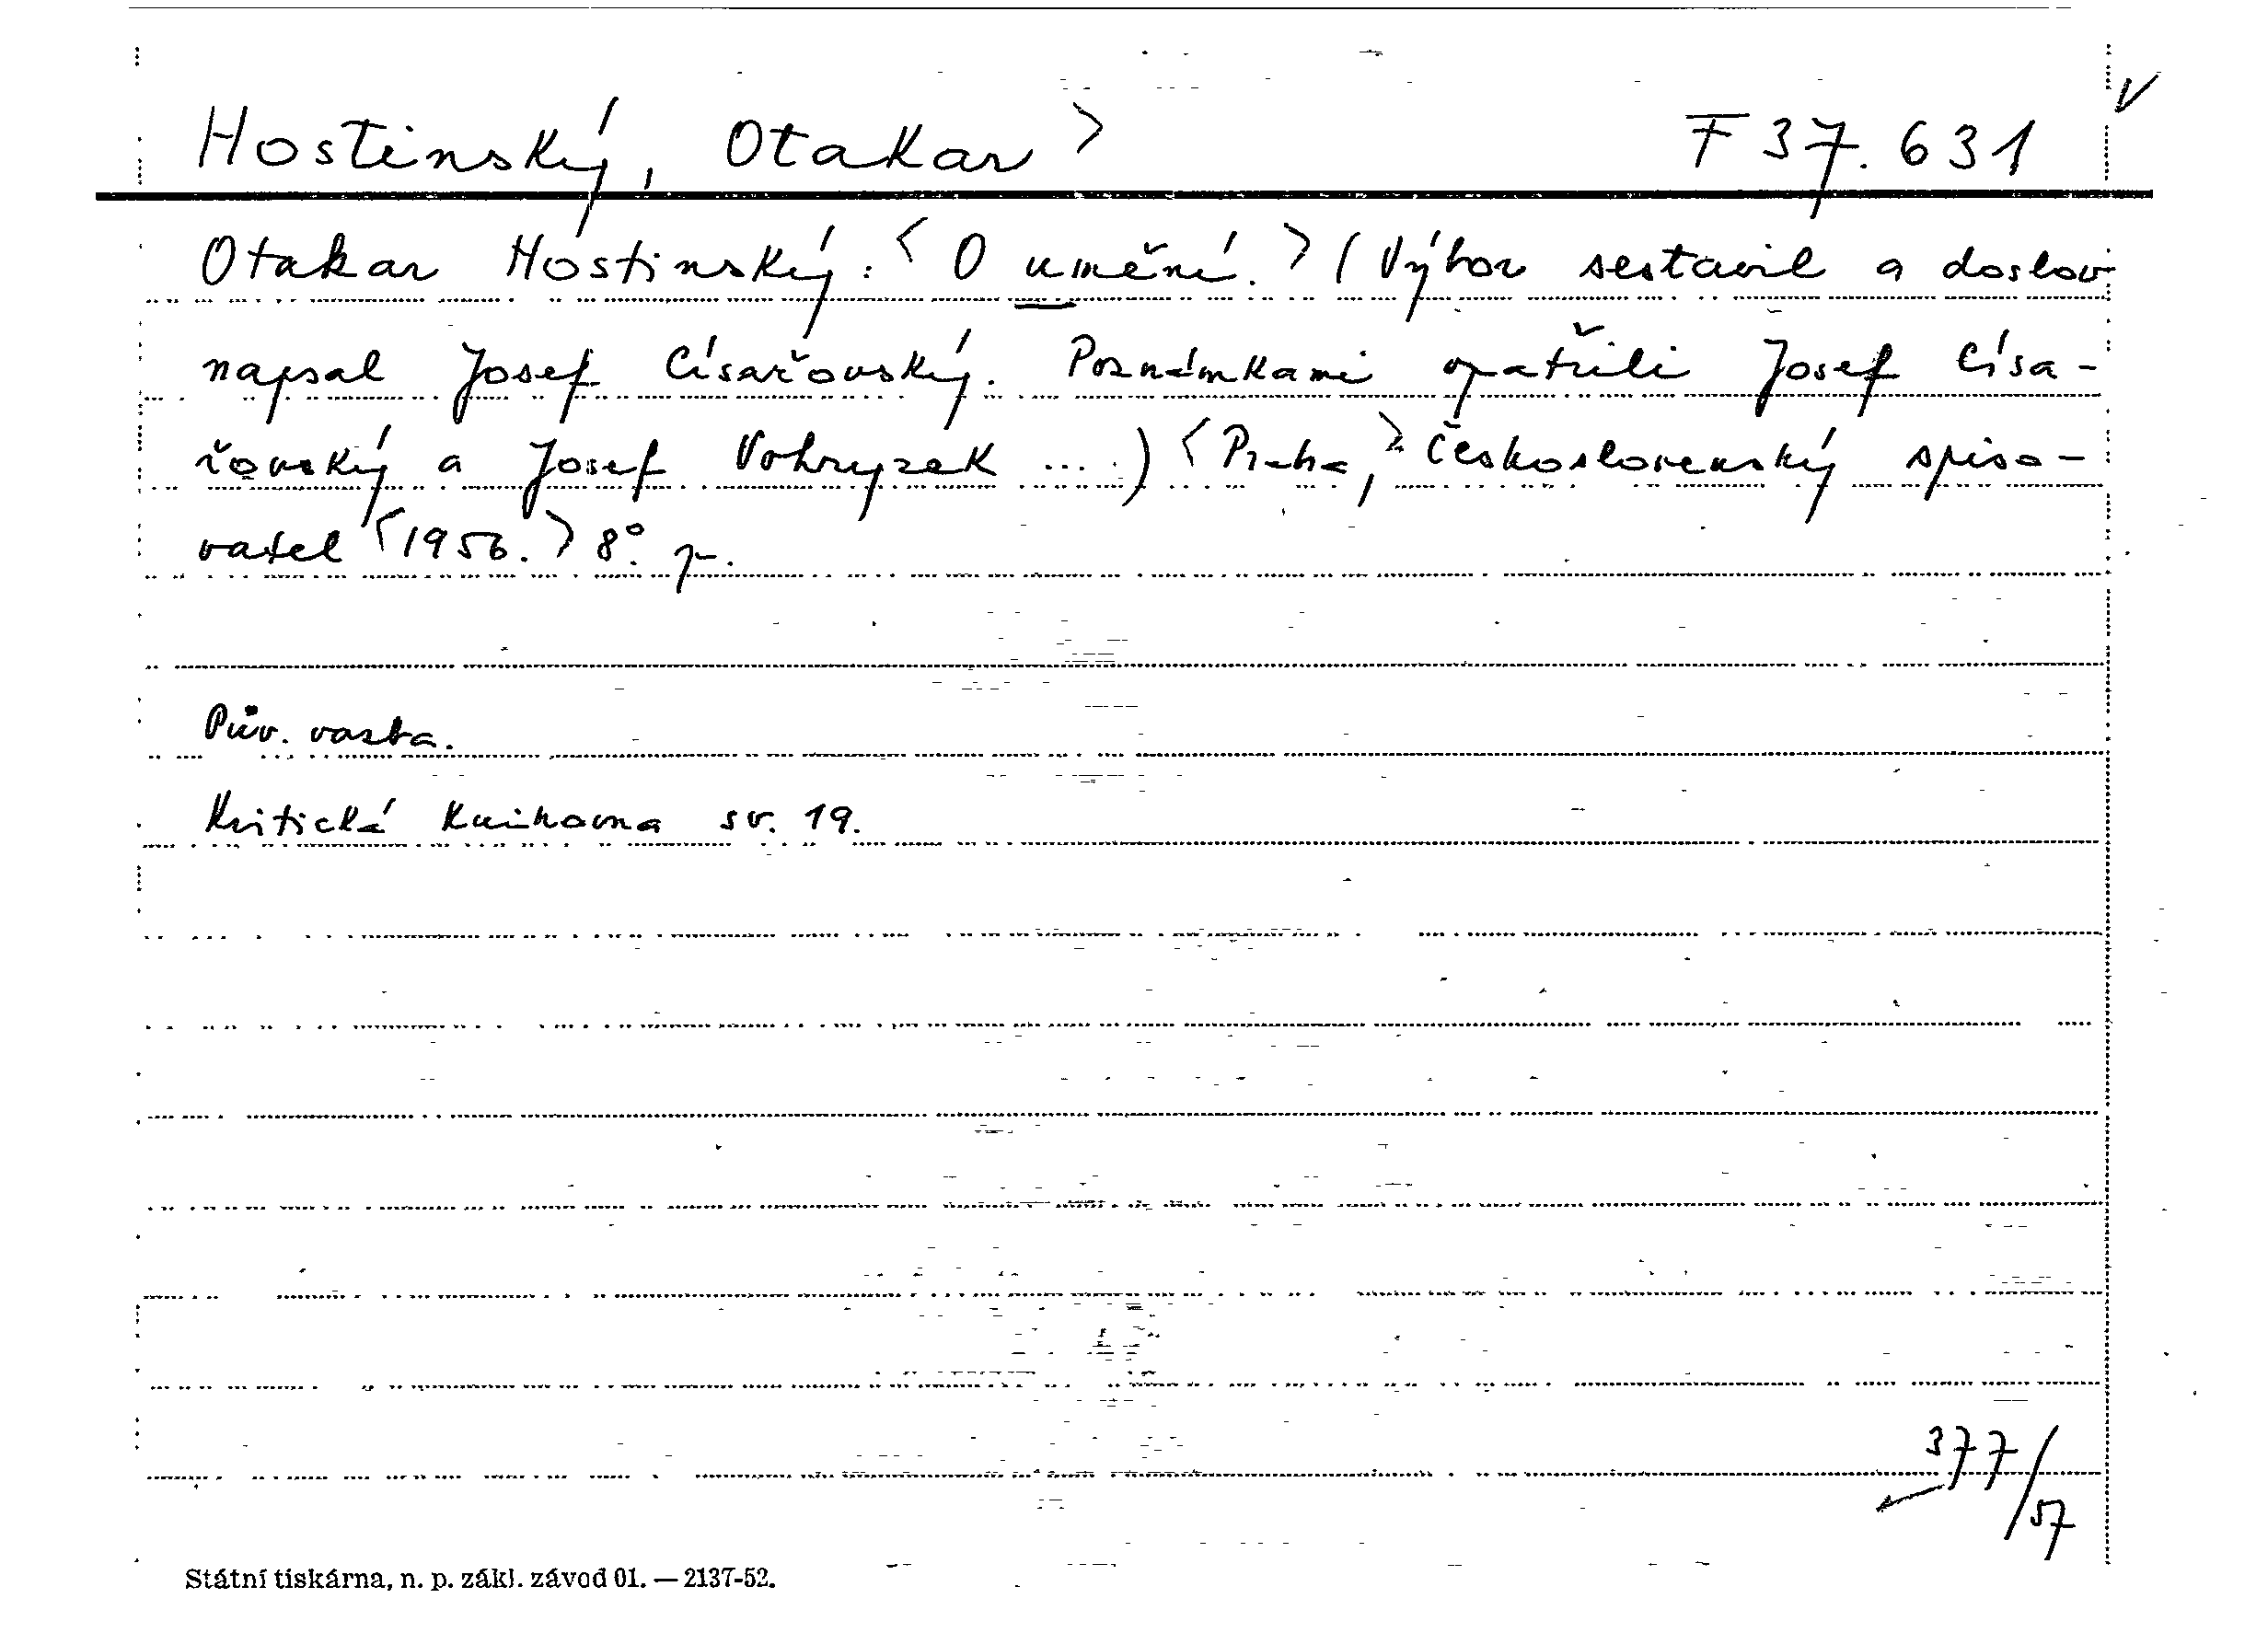 Hostinský, Otakar > F 37.631 V
Otakar Hostinský: <O umění.> (Výbor sestavil a doslov
napsal Josef Císařovský. Poznámkami opatřili Josef Císa-
řovský a Josef Vohryzek ....) <Praha,> Československý spiso-
vatel <1956.> 8°. p.
Pův. vazba.
Kritická knihovna sv. 19.
377/57
Státní tiskárna, n. p. zákl. závod 01. — 2137-52.